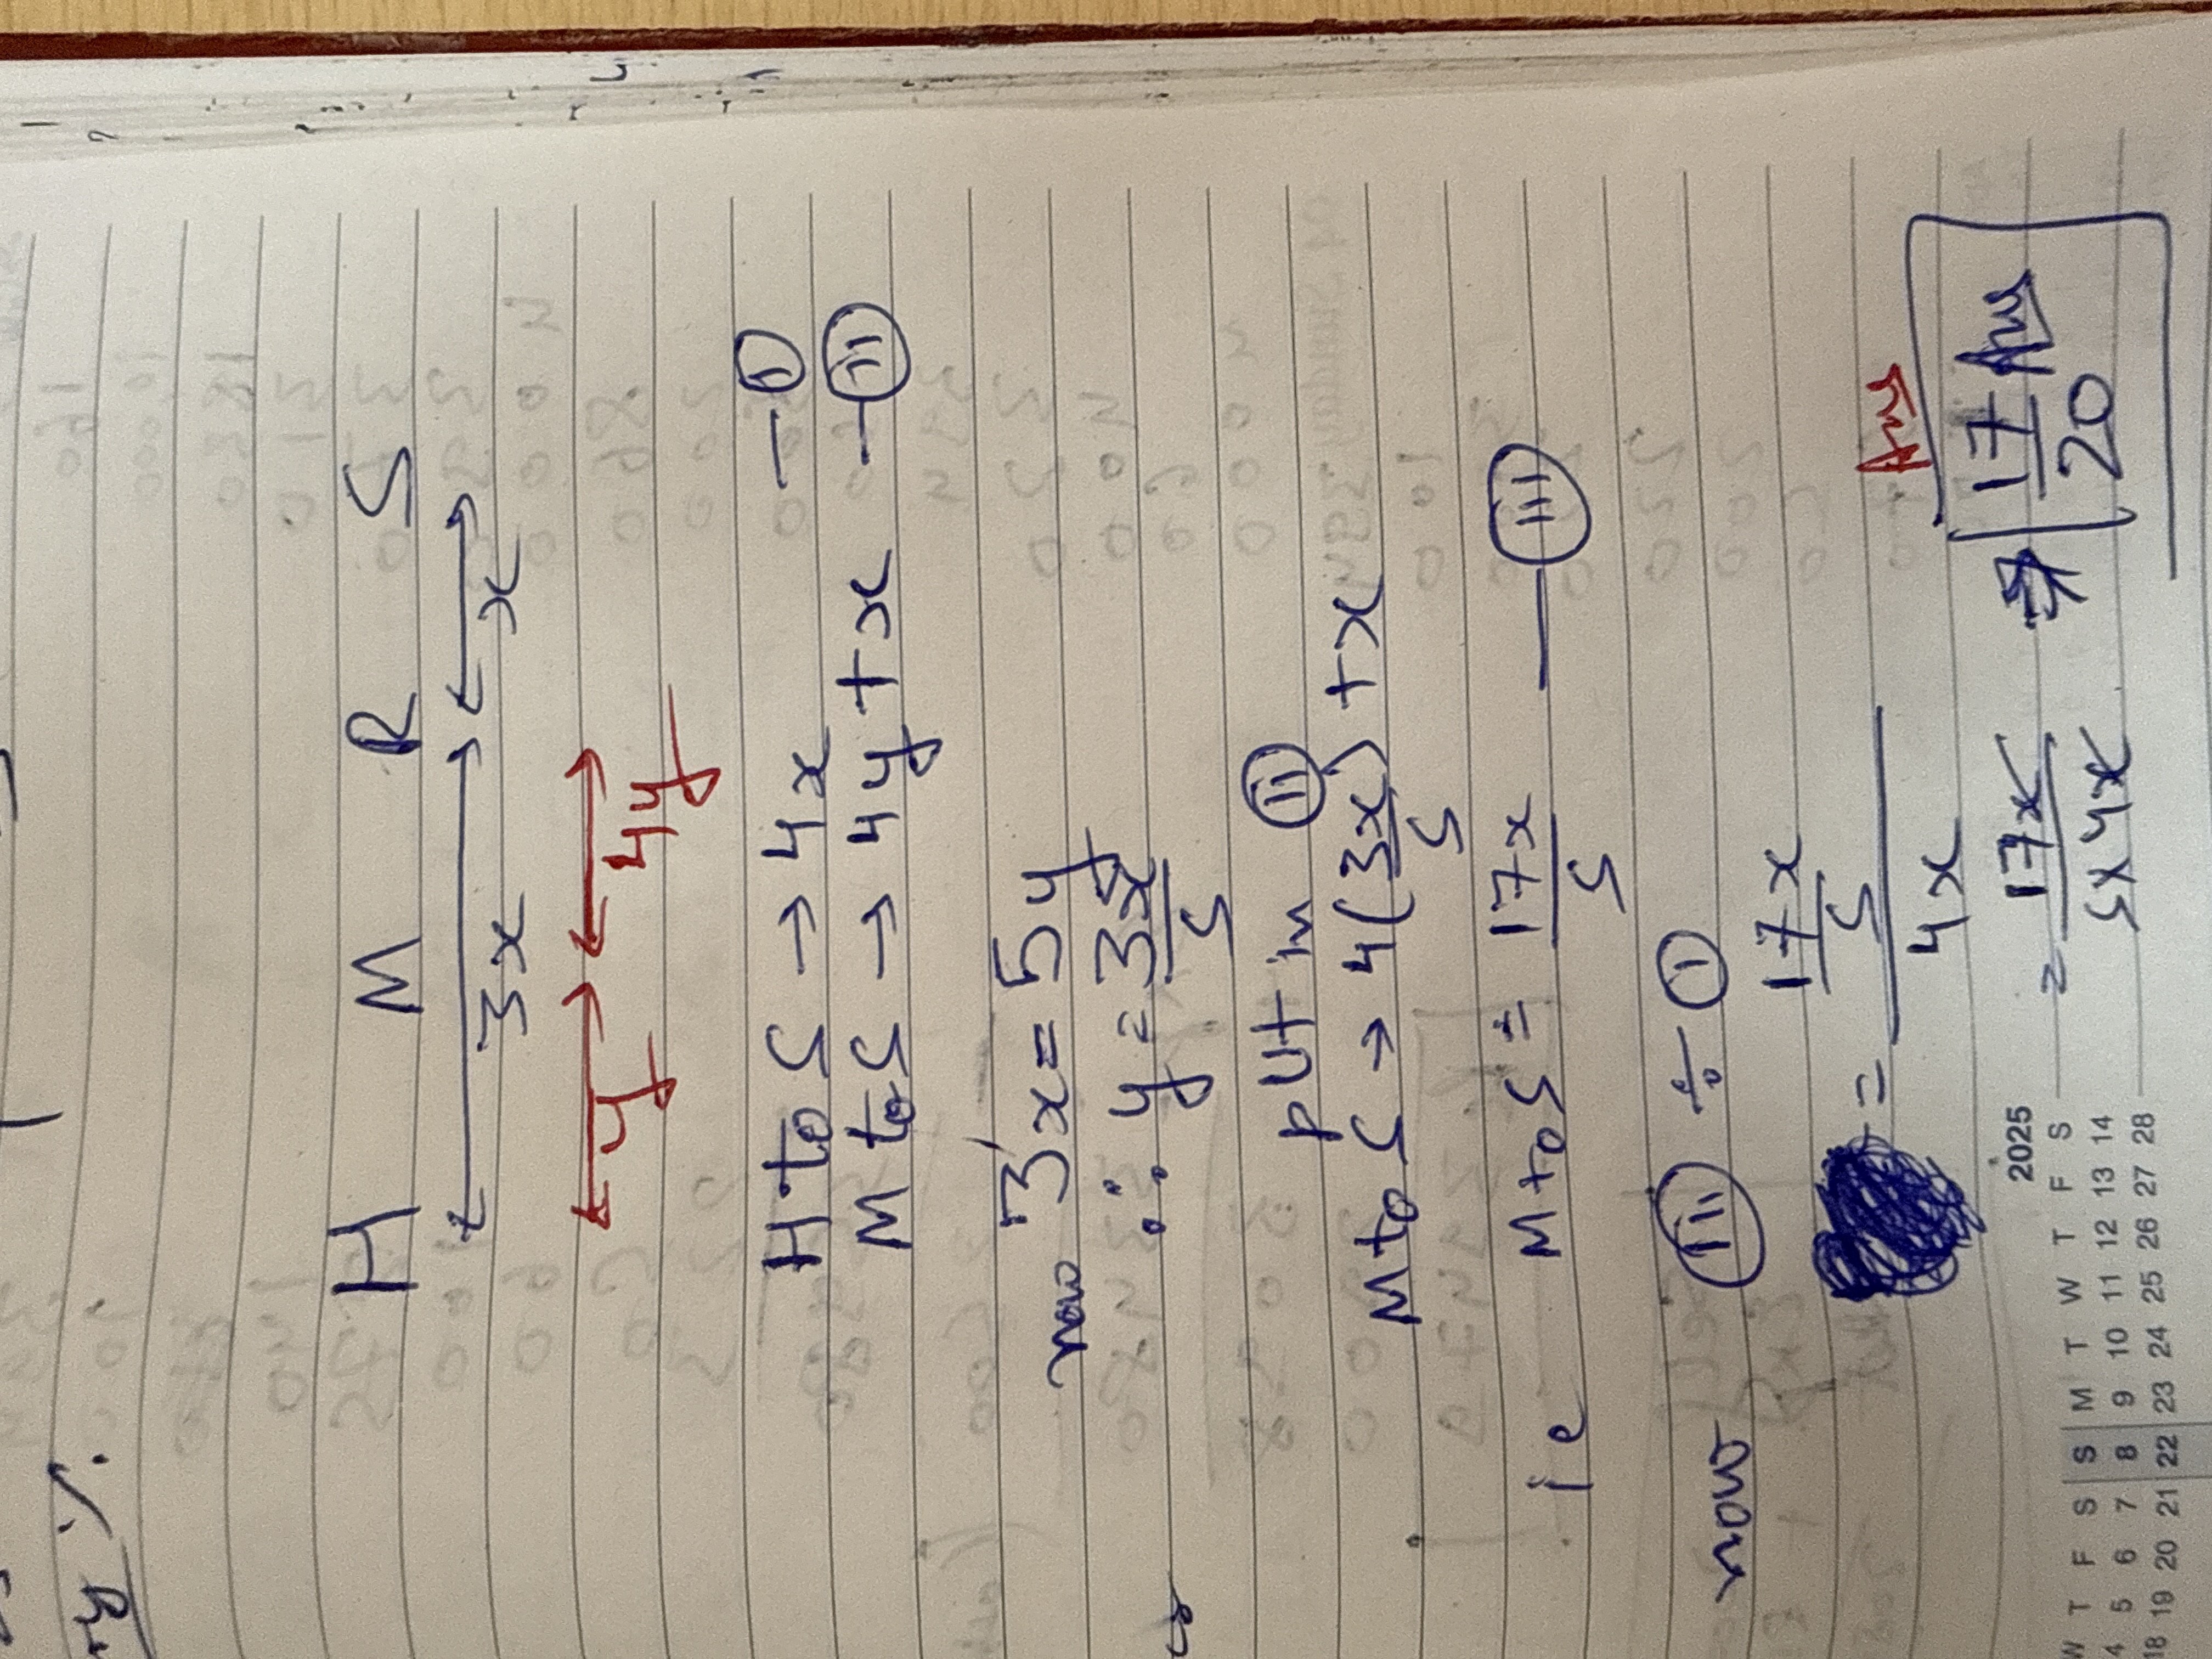 ry %.
H M R S
3x x
y 4y
H to S → 4x — (i)
M to S → 4y + x — (ii)
now 3x = 5y
∴ y = 3x/5
put in (ii)
M to S → 4(3x/5) + x
ie M to S = 17x/5 — (iii)
now (iii) ÷ (i)
= 17x/5 / 4x
Ans
= 17x / 5x4x ⇒ 17/20 Ans
2025
W T F S S M T W T F S
4 5 6 7 8 9 10 11 12 13 14
18 19 20 21 22 23 24 25 26 27 28